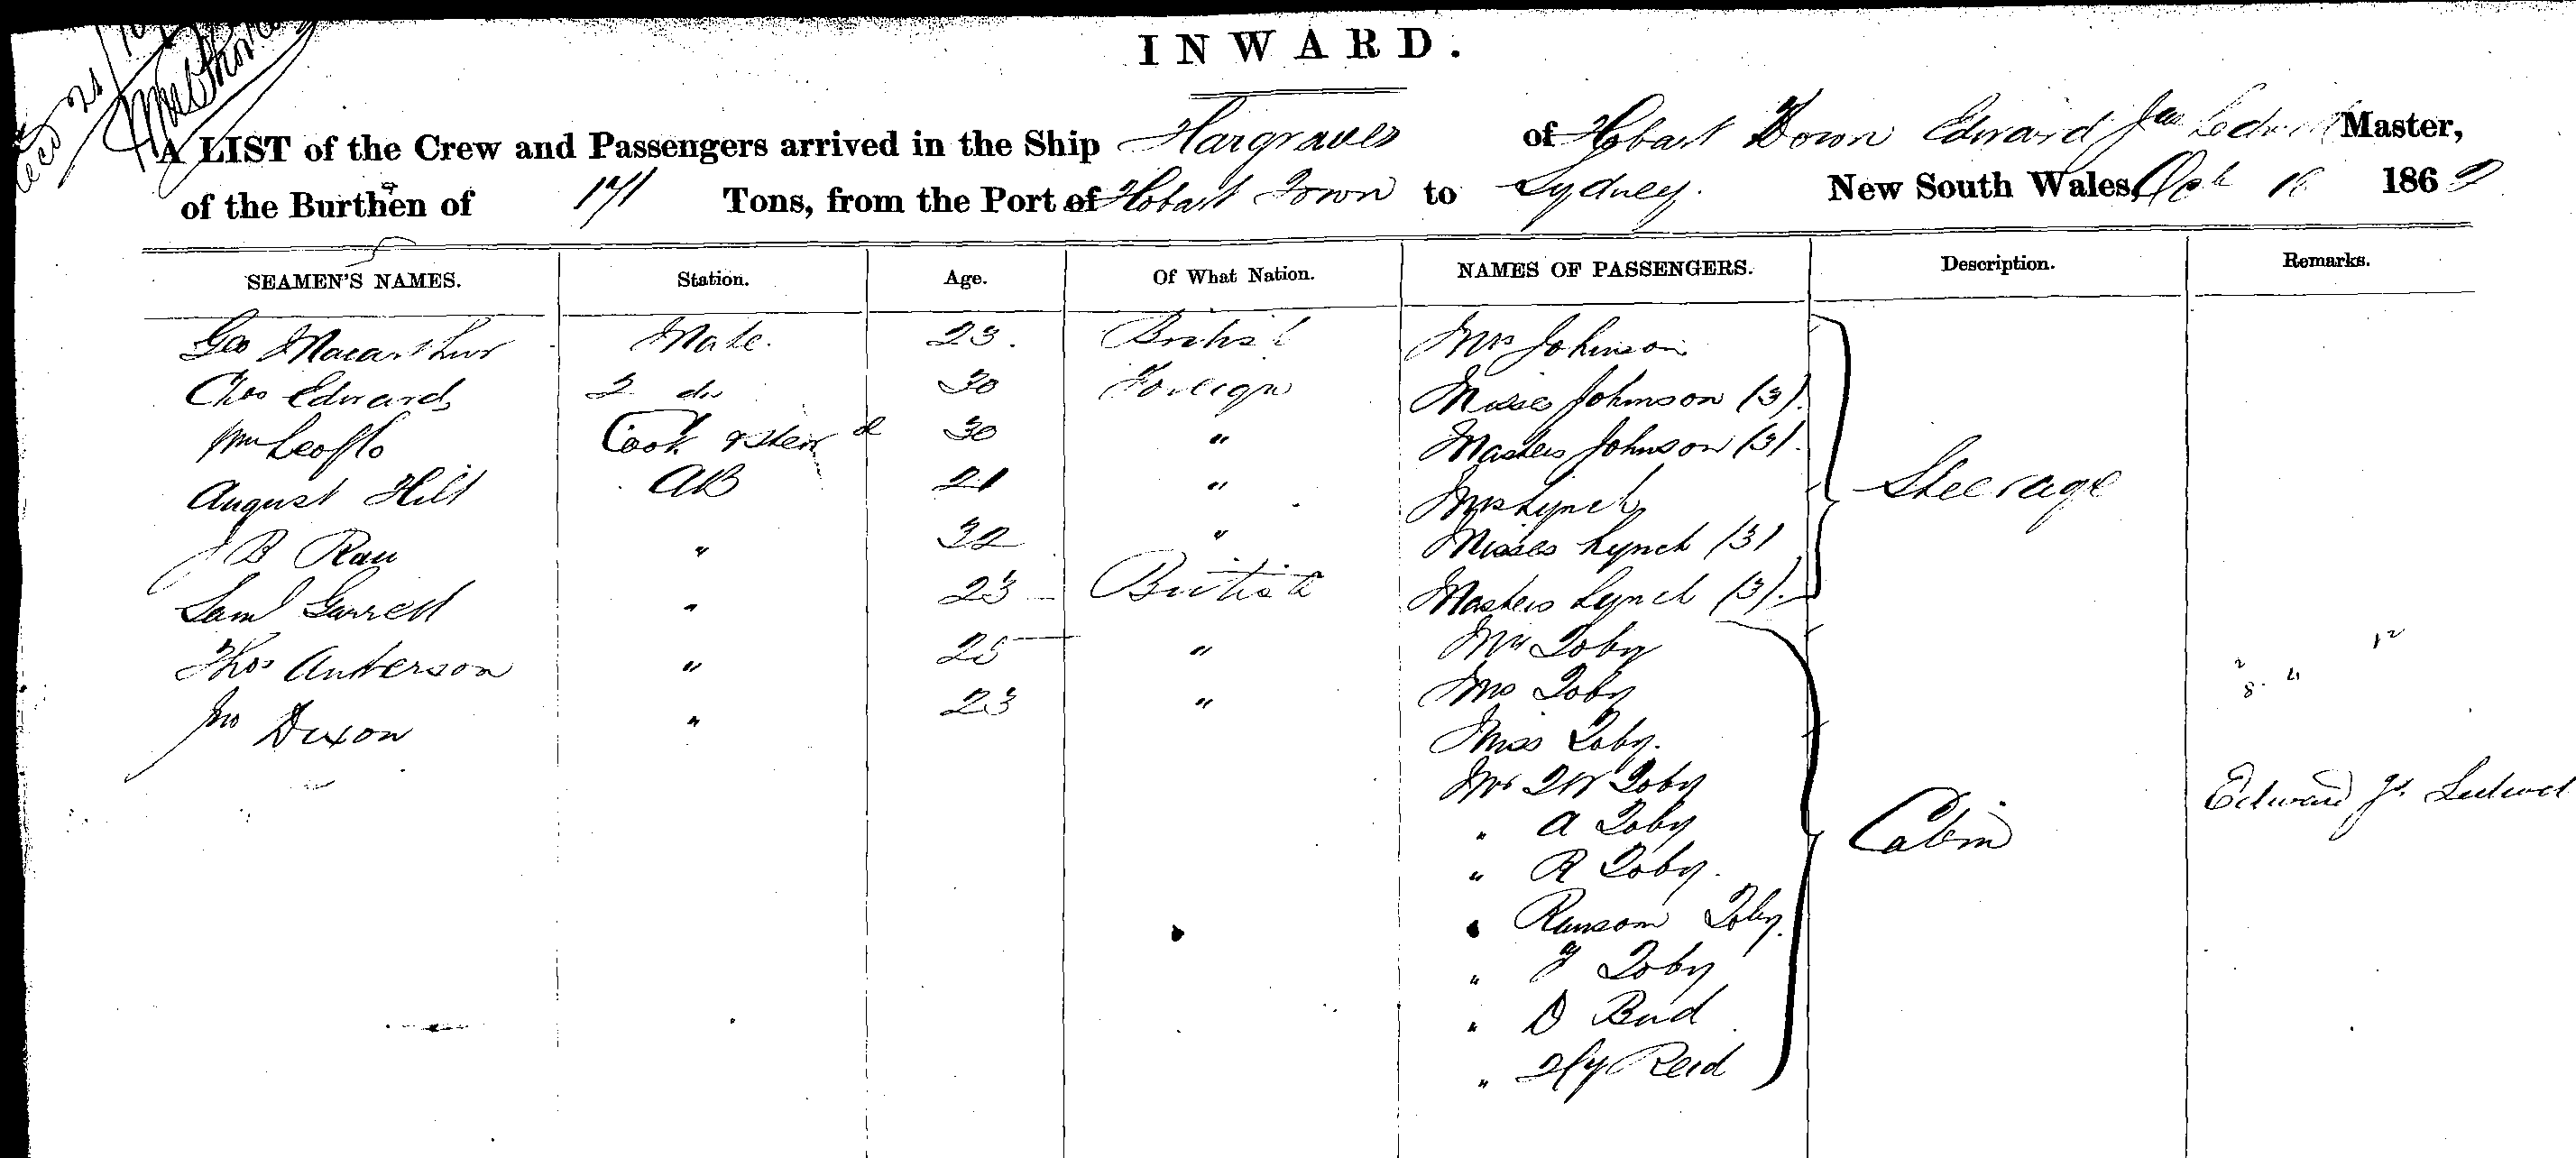 INWARD.
A LIST of the Crew and Passengers arrived in the Ship Hargraves of Hobart Town Edward Jas Master,
of the Burthen of 171 Tons, from the Port of Hobart Town to Sydney. New South Wales, Oct 16 1862
SEAMEN'S NAMES. Station. Age. Of What Nation. NAMES OF PASSENGERS. Description. Remarks.
Geo Macarthur Mate. 23. British Mrs Johnson
Chas Edwards 2 do 30 Foreign Misses Johnson (3).
Wm Cook & Stew d 30 " Masters Johnson (3).
August Hilt AB 21 " Mrs Lynch Steerage
J B Rau " 32 " Misses Lynch (3)
Saml Garrett " 23 British Masters Lynch (3).
Thos Anderson " 25 " Mr Toby
Jno Dixon " 23 " Mrs Toby
Miss Toby.
Mr Toby
" A Toby Cabin
" R Toby.
" Ransom Toby.
" J Toby
" D
" Hy Reid
Edward Js.